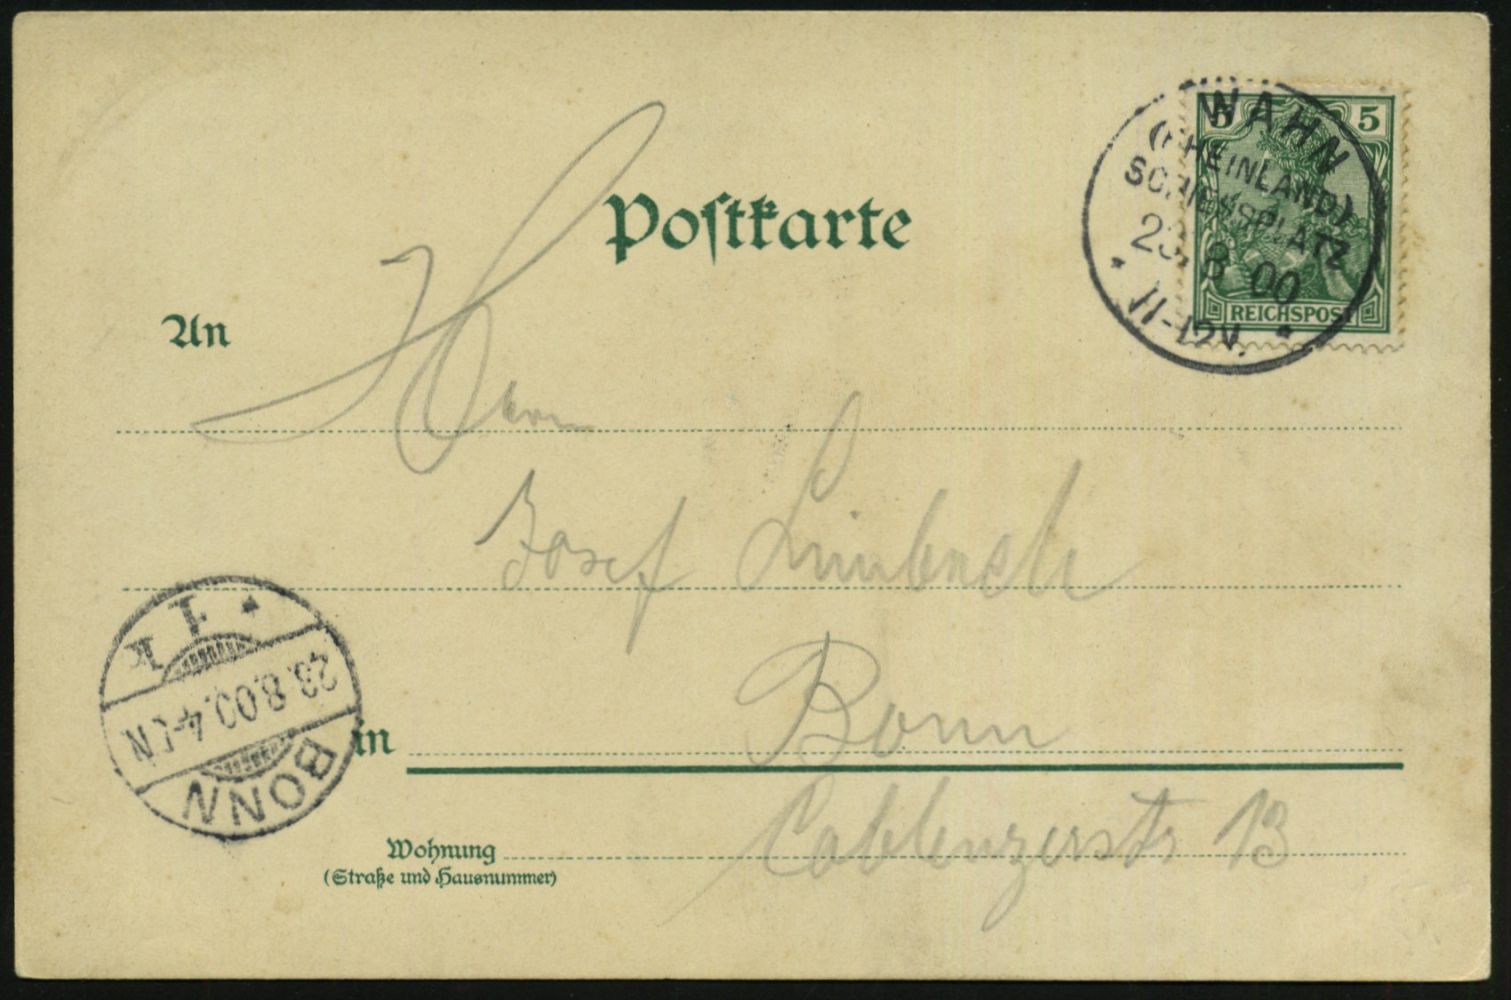 Postkarte
WAHN
(RHEINLAND)
SCHIESSPLATZ
23.8.00
11-12V.
5 5
REICHSPOST
An
Herrn
Josef
Bonn
in
BONN
23.8.00.4-5N
1 k
Coblenzerstr 13
Wohnung
(Straße und Hausnummer)